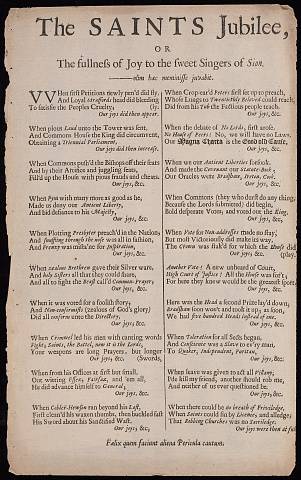 The SAINTS Jubilee,
OR
The fullness of Joy to the sweet Singers of Sion.
hæc meminisse juvabit.
WHen first Petitions newly pen'd did fly,
And Loyal Straffords head did bleeding ly;
To satisfie the Peoples Cruelty;
Our joys did then appear.
When pious Laud unto the Tower was sent,
And Commons House the King did circumvent,
Obtaining a Triennial Parliament,
Our joys did then increase.
When Commons puzl'd the Bishops off their seats
And by their Artifice and jugling feats,
Fill'd up the House with pious frauds and cheats.
Our joys, &c.
When Pym with many more as good as he,
Made us deny our Antient Liberty,
And bid defiance to his Majesty,
Our joys, &c.
When Plotting Presbyter preach'd in the Nation,
And snuffling through the nose was all in fashion,
And Frenzy was mista'ne for Inspiration,
Our joys, &c.
When zealous Brethren gave their Silver ware,
And holy Sisters all that they could spare,
And all to fight the Beast call'd Common-Prayer,
Our joys, &c.
When it was voted for a foolish story,
And Non-conformists (zealous of God's glory)
Did all conform unto the Directory,
Our joys, &c.
When Cromwel led his men with canting words
Fight, Saints, the Battel, now it is the Lords,
Your weapons are long Prayers, but longer (Swords,
Our joys, &c.
When from his Offices at first but small,
Out witting Essex, Fairfax, and 'em all,
He did advance himself to General,
Our joys, &c.
When Cobler-Hewson ran beyond his Last,
First clean'd his waxen thumbs, then buckled fast
His Sword about his Sanctified Wast.
Our joys, &c.
When Crop-ear'd Peters first set up to preach,
Whose Lungs to Twentiethly Beloved could reach,
Did from his Tub the Factious people teach.
Our joys, &c.
When the debate of No Lords, first arose.
No House of Peers! No, we will have no Laws.
Our Magna Charta is the Good old Cause.
Our joys, &c.
When we our Antient Liberties forsook,
And made the Covenant our Statute-Book;
Our Oracles were Bradshaw, Steton, Cook.
Our joys, &c.
When Commons (they who durst do any thing;
Because the Lords slumbred) did begin,
Bold desperate Votes, and voted out the King.
Our joys, &c.
When Vote for Non-addresses made no stay,
But most Victoriously did make its way,
The Crown was stak'd for which the House did (play.
Our joys, &c.
Another Vote! A new unheard of Court,
High Court of Justice! All the House was for't;
For here they knew would be the greatest sport,
Our joys, &c.
Here was the Head a second Prize lay'd down,
Bradshaw soon won't and took it up; as soon,
We had five hundred Heads instead of one.
Our joys, &c.
When Toleration for all Sects began,
And Conscience was a Slave to ev'ry man,
To Quaker, Independent, Puritan,
Our joys, &c.
When leave was given to act all Villany;
He kill my friend, another should rob me,
And neither of us ever questioned be:
Our joys, &c.
When there could be no breach of Priviledge,
When Saints could sin by Licence; and alledge:
That Robbing Churches was no Sacriledge.
Our joys were then at full.
Felix quem faciunt aliena Pericula cautum.